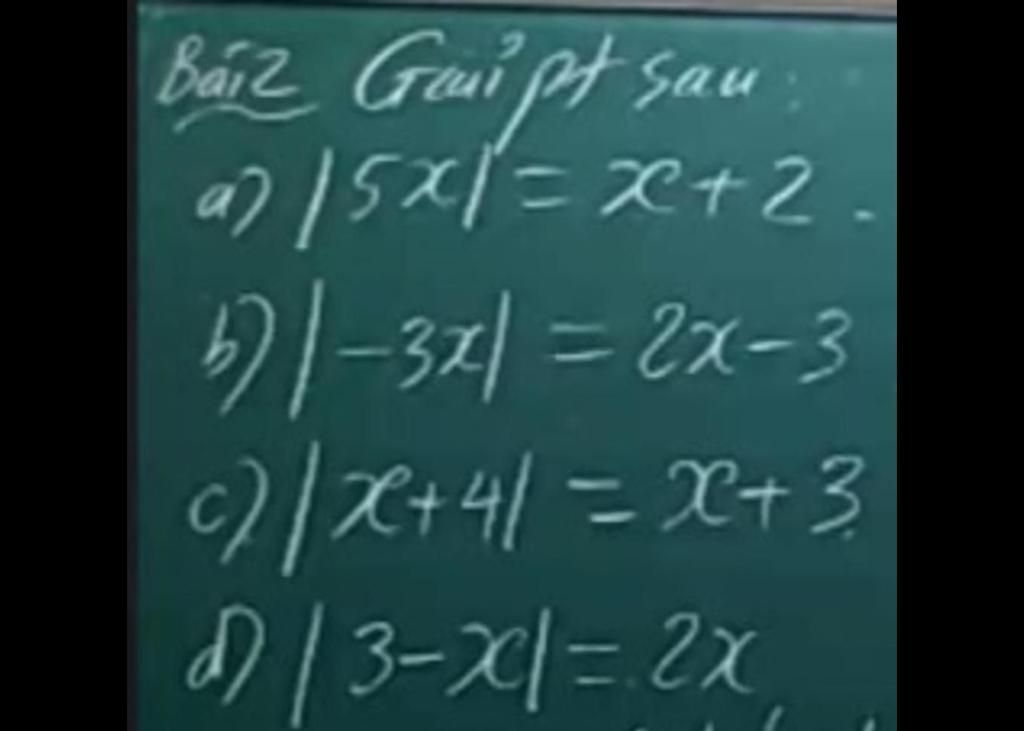 Bài 2 Giải pt sau:
a) |5x| = x + 2.
b) |-3x| = 2x - 3
c) |x + 4| = x + 3
d) |3 - x| = 2x